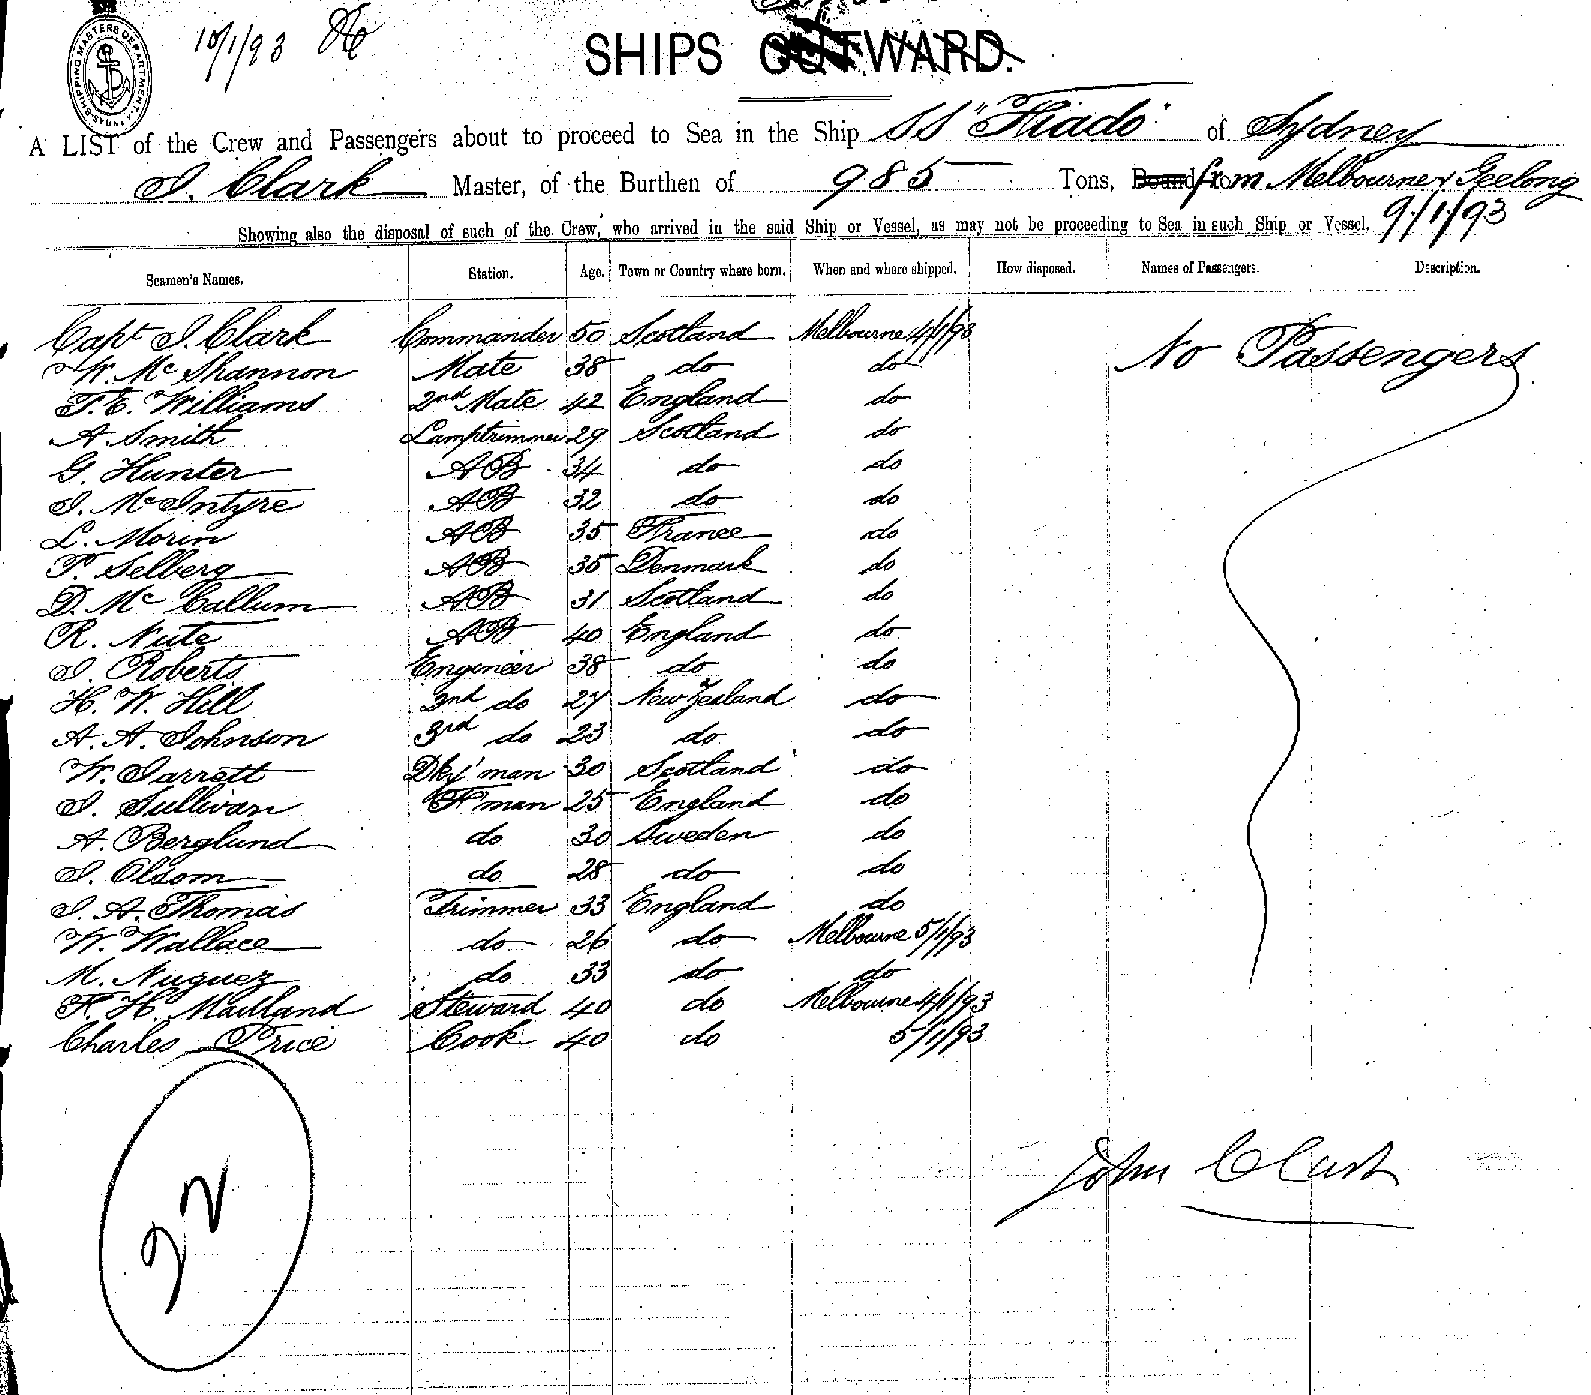 10/1/93
SHIPS OUTWARD.
SHIPPING MASTERS DEPARTMENT
A LIST of the Crew and Passengers about to proceed to Sea in the Ship SS "Fiado" of Sydney
J. Clark Master, of the Burthen of 985 Tons, from Melbourne & Geelong
9/1/93
Showing also the disposal of such of the Crew, who arrived in the said Ship or Vessel, as may not be proceeding to Sea in such Ship or Vessel.
Seamen's Names. Station. Age. Town or Country where born. When and where shipped. How disposed. Names of Passengers. Description.
Capt J. Clark Commander 50 Scotland Melbourne 4/1/93 No Passengers
W. Mc Shannon Mate 38 do do
T. E. Williams 2nd Mate 42 England do
A Smith Lamptrimmer 29 Scotland do
G. Hunter AB 34 do do
J. McIntyre AB 32 do do
L. Morin AB 35 France do
P. Selberg AB 35 Denmark do
D. Mc Callum AB 31 Scotland do
R. Nute AB 40 England do
J. Roberts Engineer 38 do do
H. W. Hill 2nd do 27 New Zealand do
A. A. Johnson 3rd do 23 do do
W. Jarrett Dky'man 30 Scotland do
J. Sullivan F'man 25 England do
A. Berglund do 30 Sweden do
J. Olsom do 28 do do
J. A. Thomas Trimmer 33 England do
W. Wallace do 26 do Melbourne 5/1/93
M. Nuguez do 33 do do
F. H. Mailland Steward 40 do Melbourne 4/1/93
Charles Price Cook 40 do 5/1/93
John Clark
22